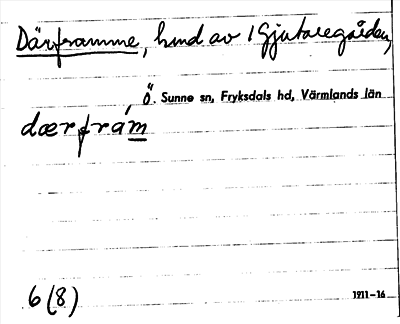 Därframme, hmd av 1 Gjutaregården,
Ö. Sunne sn, Fryksdals hd, Värmlands län
dærfrám
6(8)
1911-16